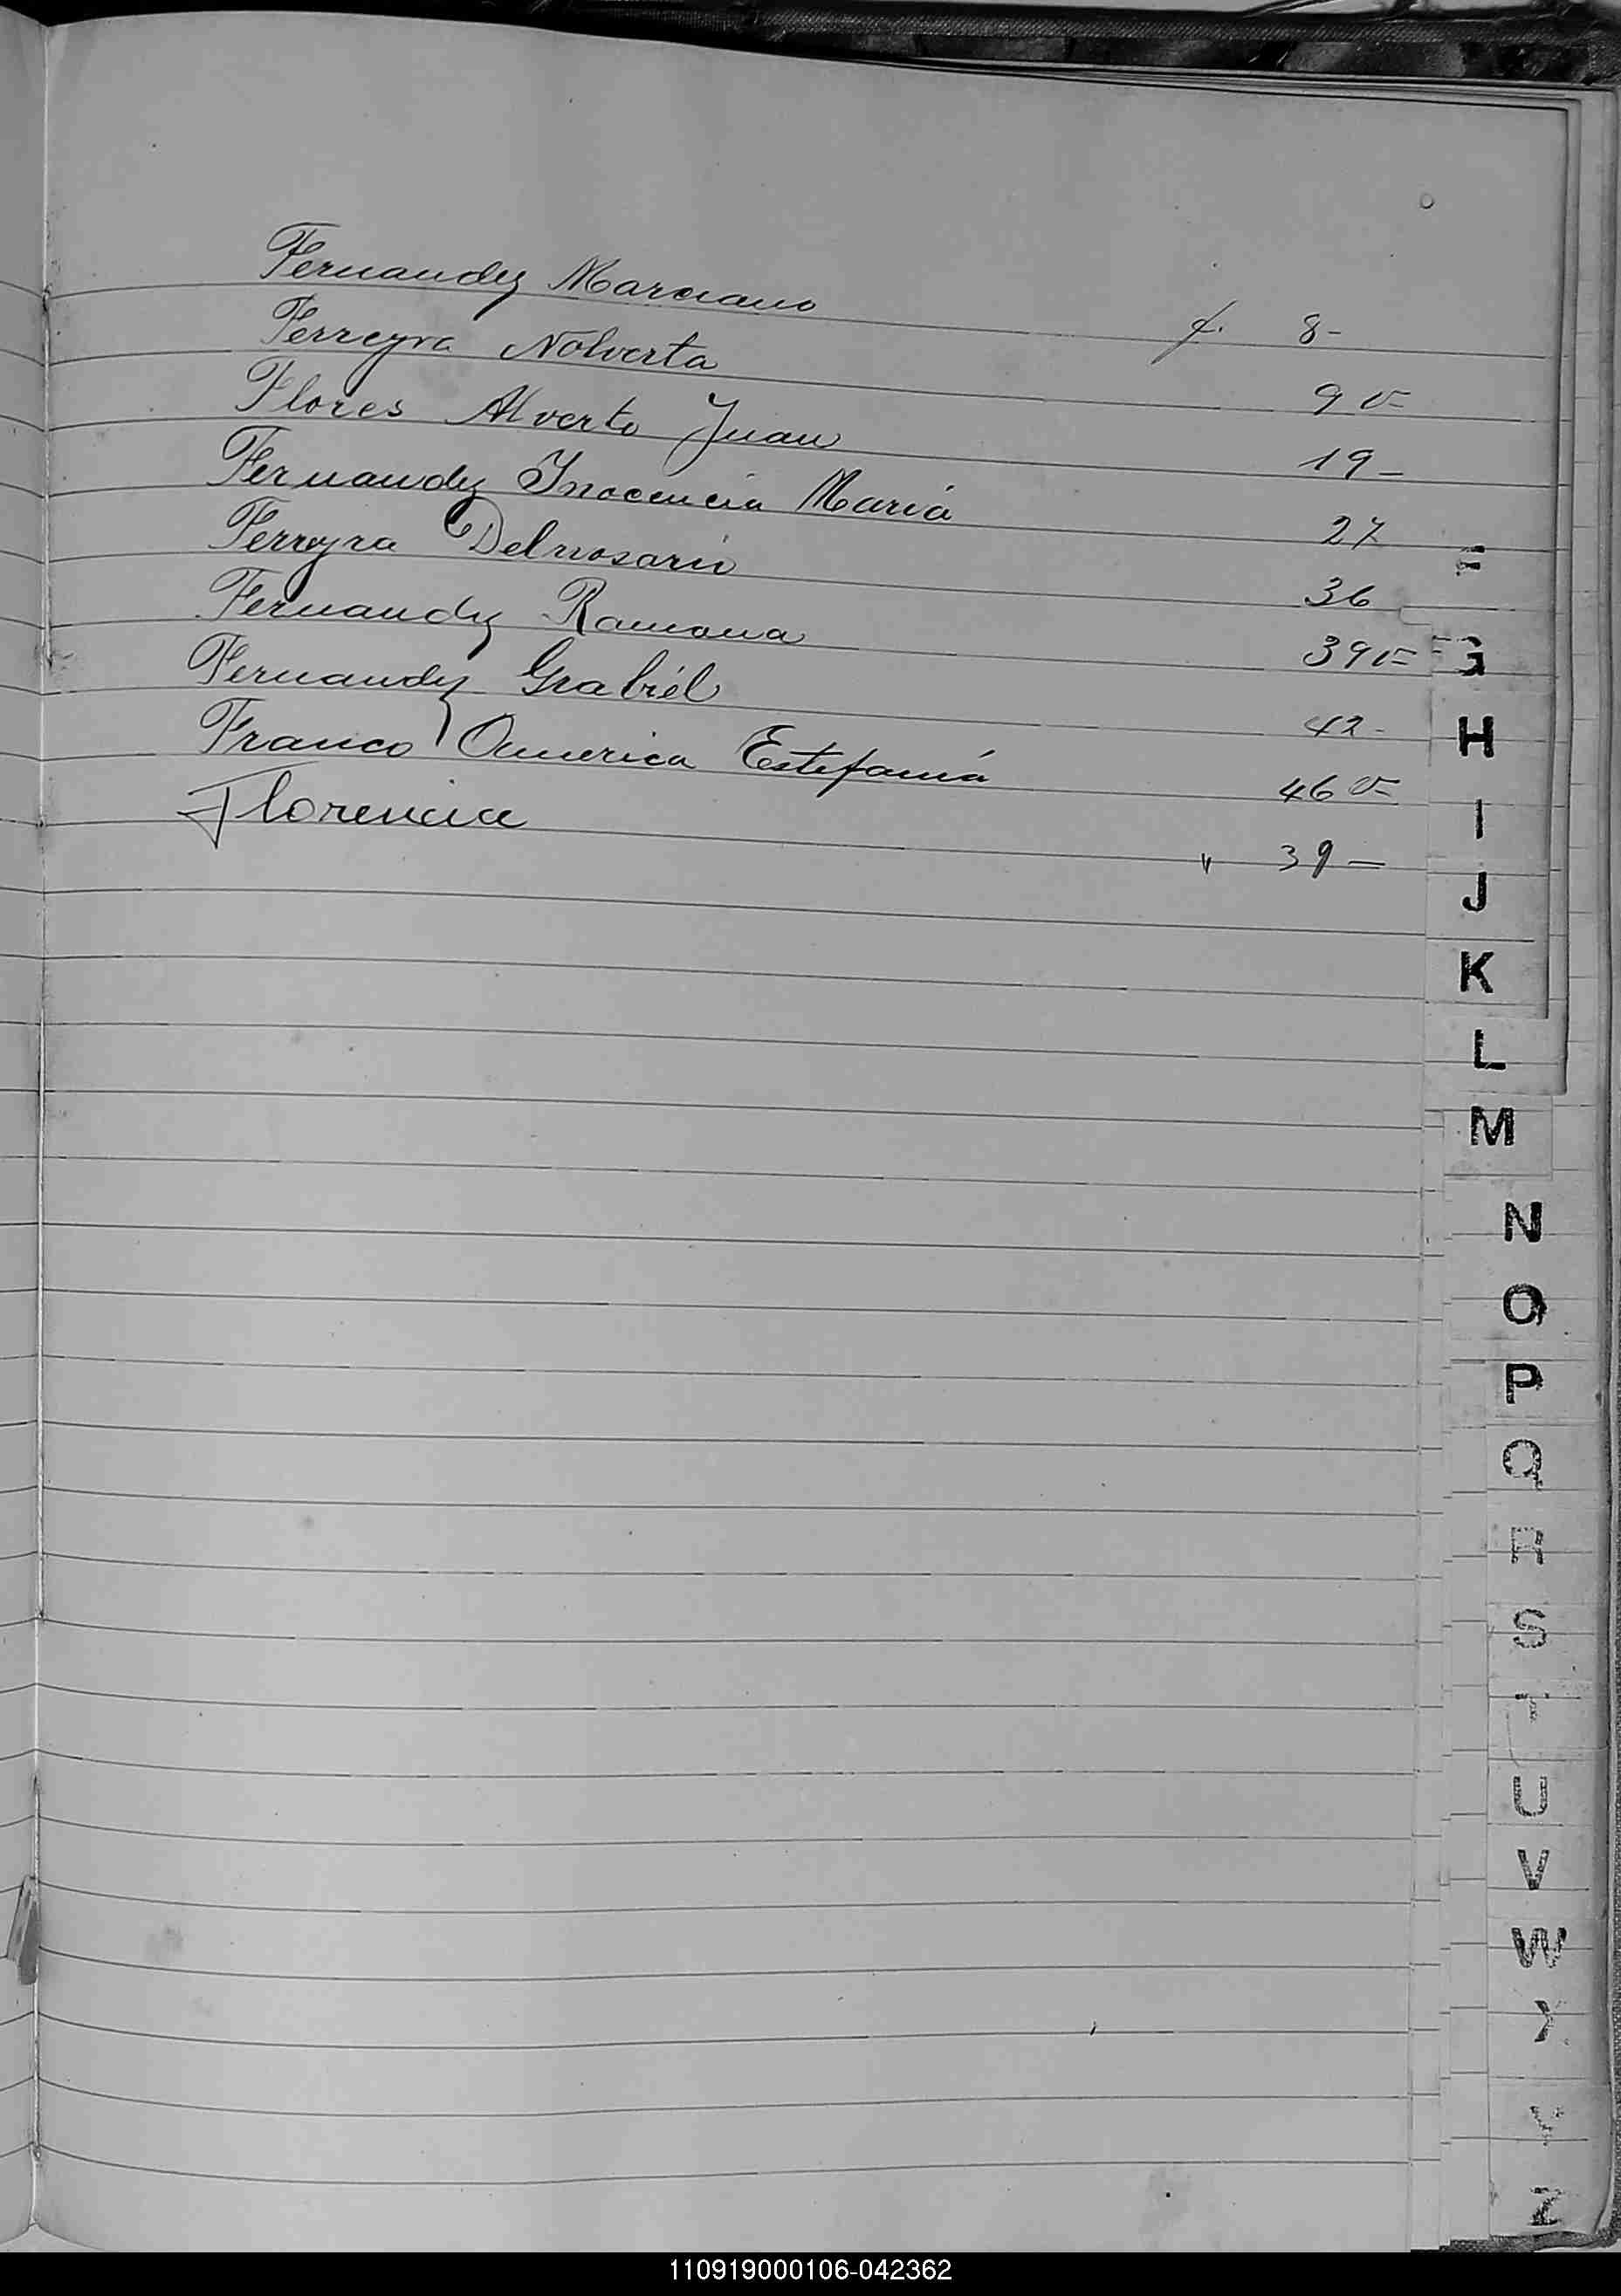 Fernandez Marciano f. 8-
Ferreyra Nolverta 9 v=
Flores Alverto Juan 19-
Fernandez Inocencia Maria 27
Ferreyra Delrrosario 36
Fernandez Ramona 39 v=
Fernandez Grabiél 42-
Franco America Estefaniá 46 v=
Florencia " 39-
F
G
H
I
J
K
L
M
N
O
P
Q
R
S
T
U
V
W
X
Y
Z
110919000106-042362